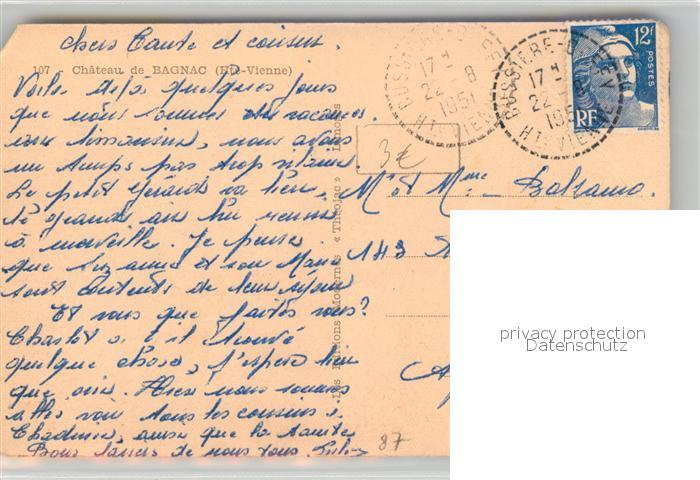 chers Tante et cousins.
107 Château de BAGNAC (Hte-Vienne)
Voilà déjà quelques jours
que nous sommes en vacances
nous avons
un temps pas trop vilain
Le petit Gérard va bien,
le grand air lui réussi
à merveille. Je pense
que et son Mari
sont contents de leur séjour
Et vous que faites vous?
Charlot a t-il trouvé
quelque chose, j'espère bien
que oui. Hier nous sommes
allés voir tous les cousins
ainsi que la tante
Bons baisers de nous tous.
Les Editions Modernes « Théojac » Limoges
BUSSIERE
17 H
22 - 8
1951
HTE VIENNE
BUSSIERE
17 H
22
1951
HTE VIENNE
12F
POSTES
RF
3€
Mr et Mme Balsamo.
143
87
privacy protection
Datenschutz